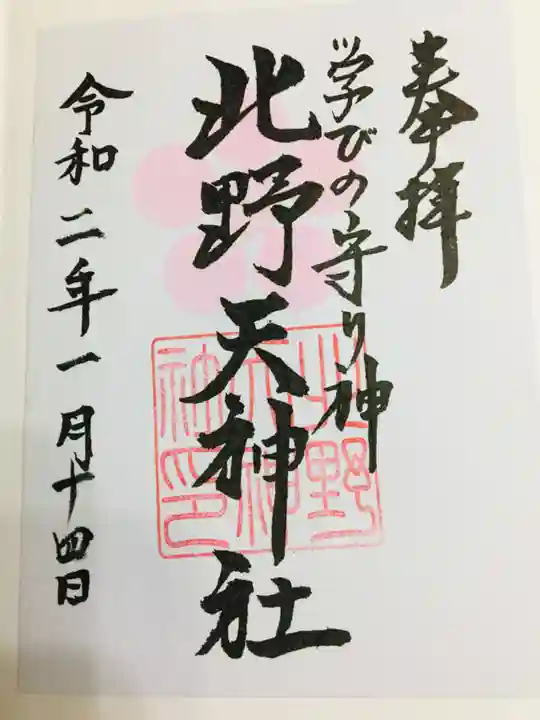 奉拝
学びの守り神
北野天神社
令和二年一月十四日
北野
天神
社印